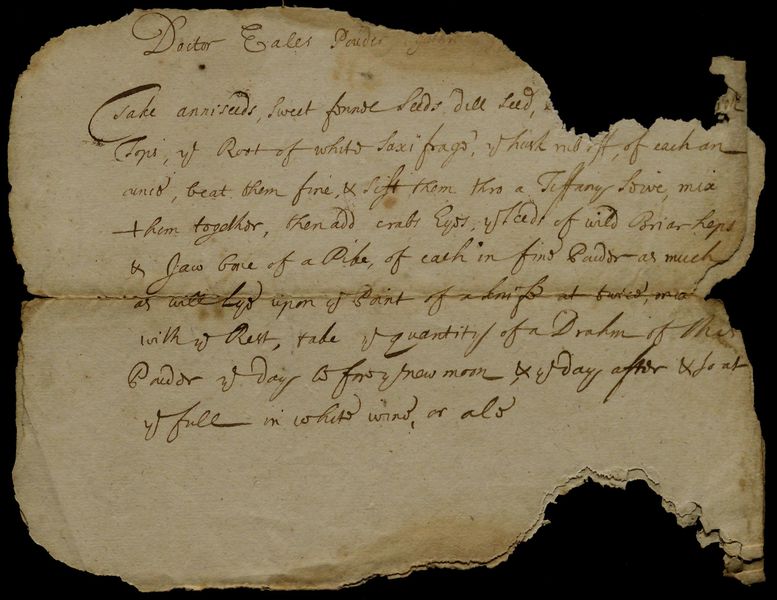 Doctor Eales Pouder
Take anniseeds, sweet fennel seeds, dill seed,
Tops, ye Root of white Saxifrage, ye husk rub off, of each an
ounce, beat them fine, & sift them thro a Tiffany Seive, mix
them together, then add crabs Eyes, ye seeds of wild Briar heps
& Jaw bone of a Pike, of each in fine Pouder as much
as will Lye upon ye Point of a knife at twice, mix
with ye Rest, take ye quantity of a Drahm of this
Pouder ye day before ye new moon & ye day after & so at
ye full in white wine, or ale